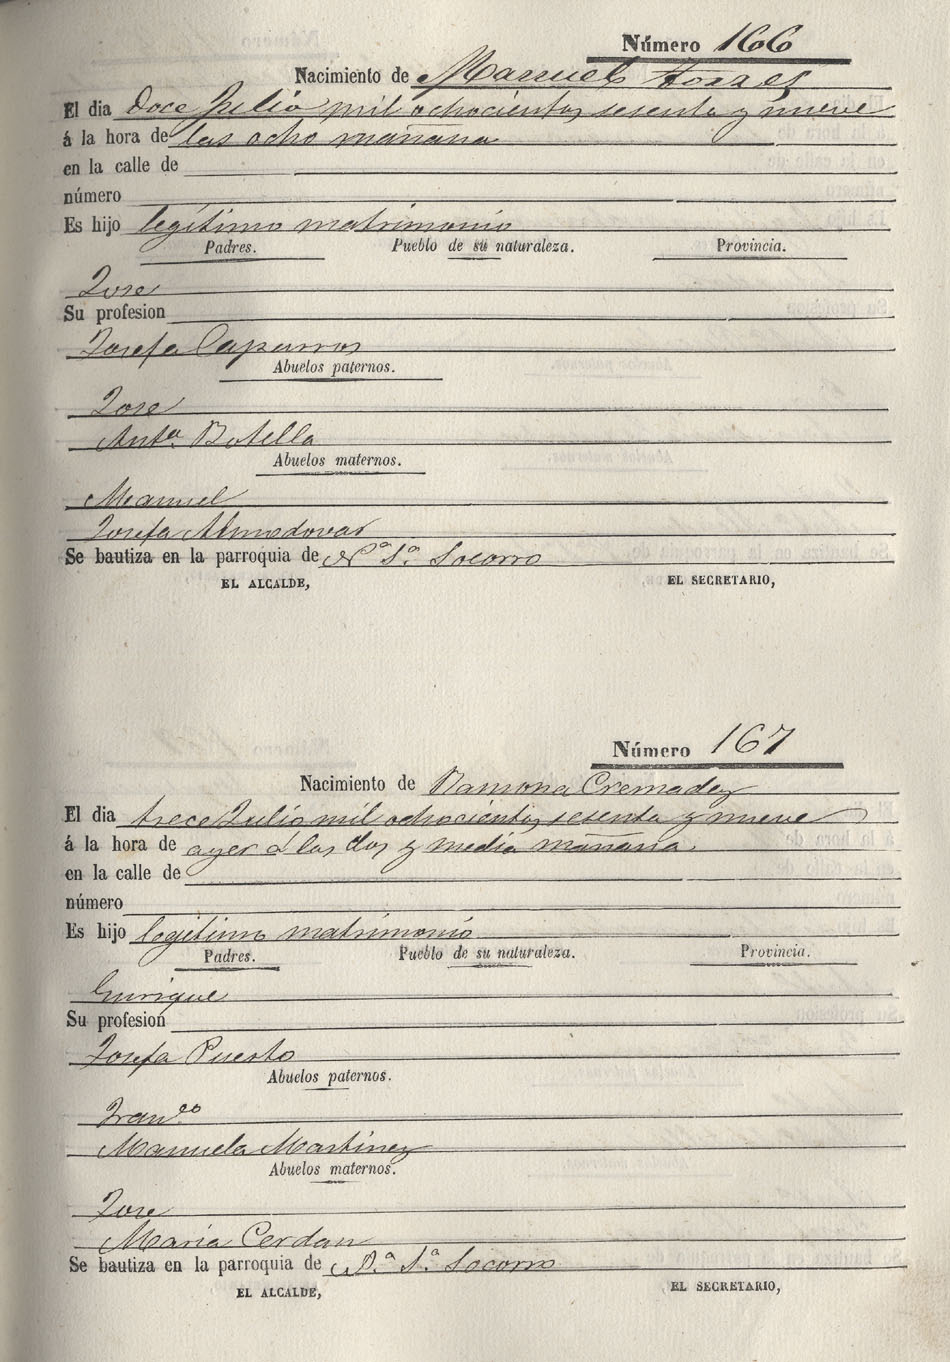 Número 166
Nacimiento de Manuel Torres
El dia doce Julio mil ochocientos sesenta y nueve
á la hora de las ocho mañana
en la calle de
número
Es hijo legítimo matrimonio
Padres. Pueblo de su naturaleza. Provincia.
Jose
Su profesion
Josefa Caparros
Abuelos paternos.
Jose
Antª Botella
Abuelos maternos.
Manuel
Josefa Almodovar
Se bautiza en la parroquia de Nª Sª Socorro
EL ALCALDE, EL SECRETARIO,
Número 167
Nacimiento de Ramona Cremades
El dia trece Julio mil ochocientos sesenta y nueve
á la hora de ayer á las dos y media mañana.
en la calle de
número
Es hijo legítimo matrimonio
Padres. Pueblo de su naturaleza. Provincia.
Enrique
Su profesion
Josefa Puerto
Abuelos paternos.
Franco
Manuela Martinez
Abuelos maternos.
Jose
Maria Cerdan
Se bautiza en la parroquia de Nª Sª Socorro
EL ALCALDE, EL SECRETARIO,